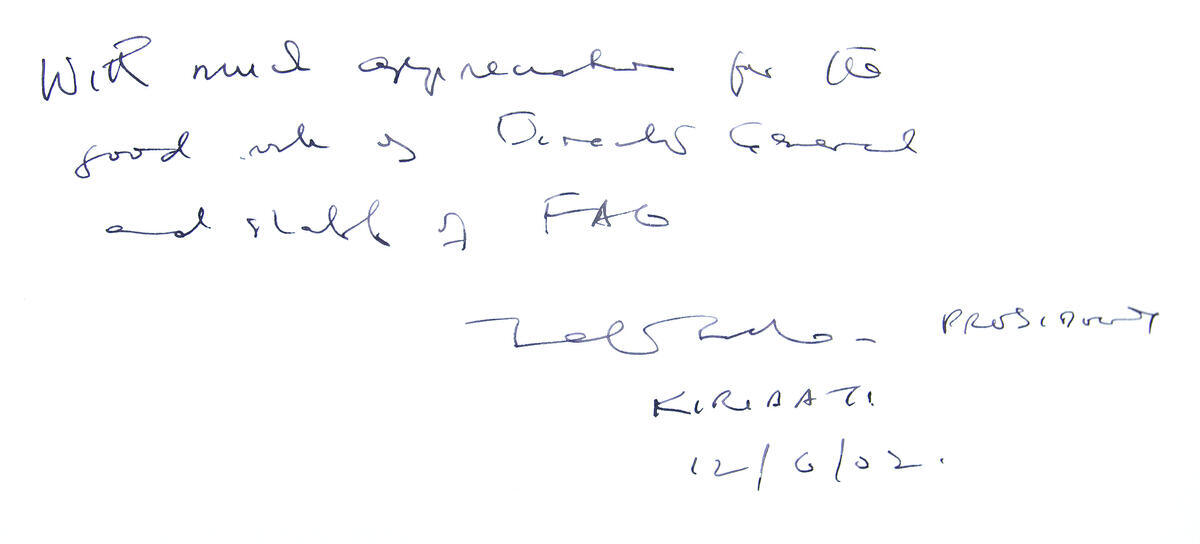 With much appreciation for the
good work of Director General
and staff of FAO
PRESIDENT
KIRIBATI
12/6/02.